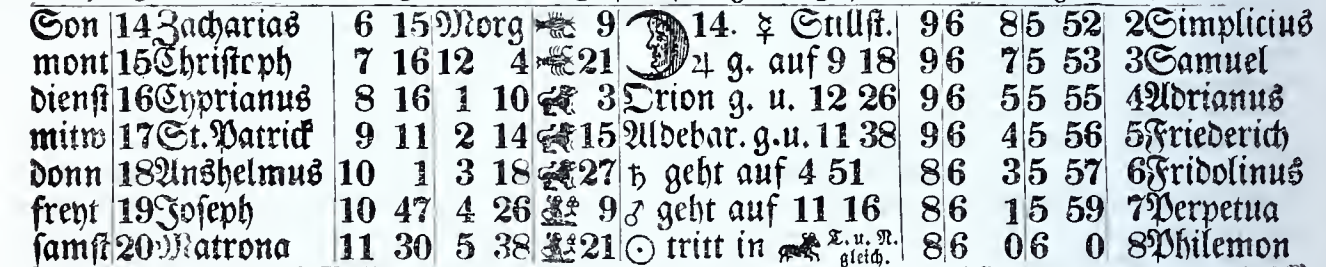 Son 14 Zacharias 6 15 Morg 9 14. ☿ Stillst. 9 6 8 5 52 2 Simplicius
mont 15 Christoph 7 16 12 4 21 ♃ g. auf 9 18 9 6 7 5 53 3 Samuel
dienst 16 Cyprianus 8 16 1 10 3 Orion g. u. 12 26 9 6 5 5 55 4 Adrianus
mitw 17 St. Patrick 9 11 2 14 15 Aldebar. g. u. 11 38 9 6 4 5 56 5 Friederich
donn 18 Anshelmus 10 1 3 18 27 ♄ geht auf 4 51 8 6 3 5 57 6 Fridolinus
freyt 19 Joseph 10 47 4 26 9 ♂ geht auf 11 16 8 6 1 5 59 7 Perpetua
samst 20 Matrona 11 30 5 38 21 ☉ tritt in T. u. N. gleich. 8 6 0 6 0 8 Philemon